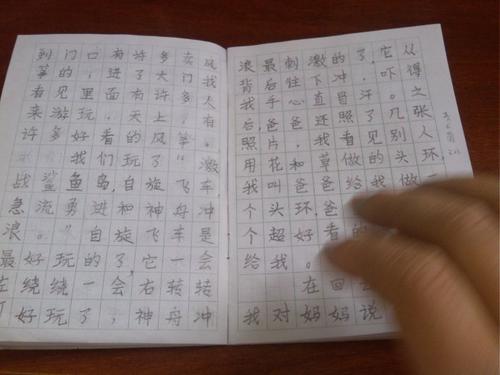 到门口有许多卖风
筝的，进了大门，我
看见里面有许多人
来游玩，天上有
许多好看的风筝。
我们玩了“激
战鲨鱼岛，自旋飞车
急流勇进和神舟冲
浪。”自旋飞车是
最好玩的了，它一会
左绕绕一会右转转
好玩了，神舟冲
浪最刺激的了，它从
背后往下冲，吓得
我手心直冒汗。之
后，爸爸还照了几张
照片，我看见别人
用花和草做的头环，
我叫爸爸给我做一
个头环，爸
个超好看的
给我。
在回
我对妈妈说